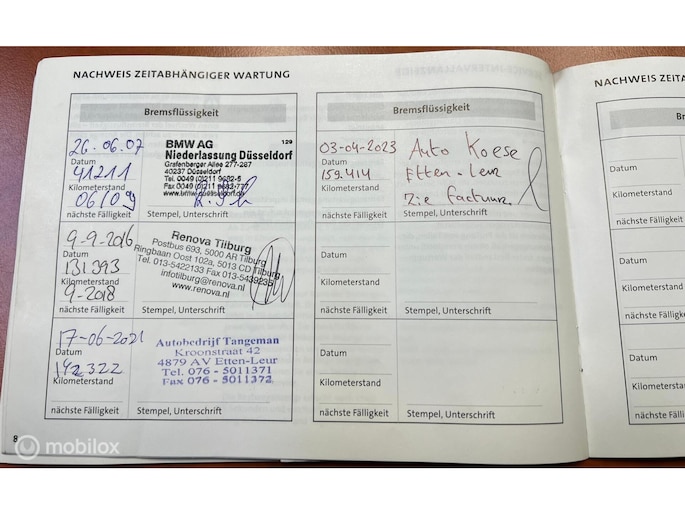 NACHWEIS ZEITABHÄNGIGER WARTUNG
Bremsflüssigkeit
26.06.07
Datum
41211
Kilometerstand
06/09
nächste Fälligkeit
BMW AG 129
Niederlassung Düsseldorf
Grafenberger Allee 277-287
40237 Düsseldorf
Tel. 0049 (0)211 9682-5
Fax 0049 (0)211 9682-777
www.bmw-duesseldorf.de
Stempel, Unterschrift
9-9-2016
Datum
131393
Kilometerstand
9-2018
nächste Fälligkeit
Renova Tilburg
Postbus 693, 5000 AR Tilburg
Ringbaan Oost 102a, 5013 CD Tilburg
Tel. 013-5422133 Fax 013-5439235
infotilburg@renova.nl
www.renova.nl
Stempel, Unterschrift
17-06-2021
Datum
142322
Kilometerstand
nächste Fälligkeit
Autobedrijf Tangeman
Kroonstraat 42
4879 AV Etten-Leur
Tel. 076 - 5011371
Fax 076 - 5011372
Stempel, Unterschrift
8
Bremsflüssigkeit
03-04-2023
Datum
159.414
Kilometerstand
nächste Fälligkeit
Auto Koese
Etten-Leur
Zie factuur
Stempel, Unterschrift
Datum
Kilometerstand
nächste Fälligkeit
Stempel, Unterschrift
NACHWEIS ZEITA
Br
Datum
Kilometerstand
nächste Fälligkeit
Datum
Kilometerstand
nächste Fälligkeit
Datum
Kilometerstand
nächste Fällig
mobilox